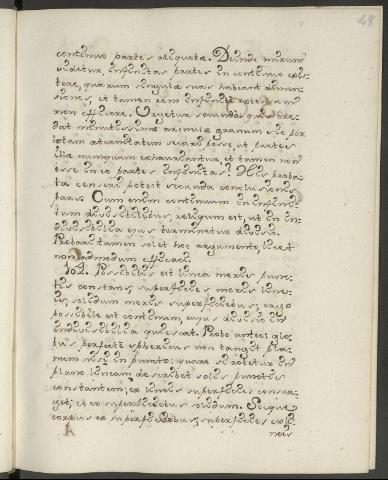 48
continuo partes aliquotæ. Deinde mirum
videtur, infinitas partes in continuo exis-
tere, quarum singulæ suas habeant dimen-
siones, et tamen rem infinite extensam
non efficere. Urgetur secundo: quis cre-
dat minutissimæ arenulæ granum sic per
totam æternitatem secari posse, ut partes
illæ numquam exhauriantur, et tamen non
esse in eo partes infinitas? His proba-
ta censeri potest secunda conclusionis
pars. Cum enim continuum in infini-
tum divisibilibus, reliquum est, ut in in-
divisibilia ejus terminetur divisio.
Probari tamen solet hoc argumento, licet
non admodum efficaci.
102. Possibilis est linea meris punc-
tis constans, superficies meris line-
is, solidum meris superficiebus; ergo
possibile est continuum, cujus divisio in
indivisibilia quiescat. Probo anteci. glo-
bus perfecte sphericus non tangit pla-
num nisi in puncto: quare si rotetur in
plano lineam describet solis punctis
constantem; ex lineis superficies consur-
get; et ex superficiebus solidum. Sicque
corpus ex superficiebus; superficies ex li-
neis